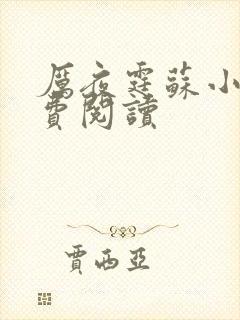 厲夜霆蘇小
費閱讀
賈西亞